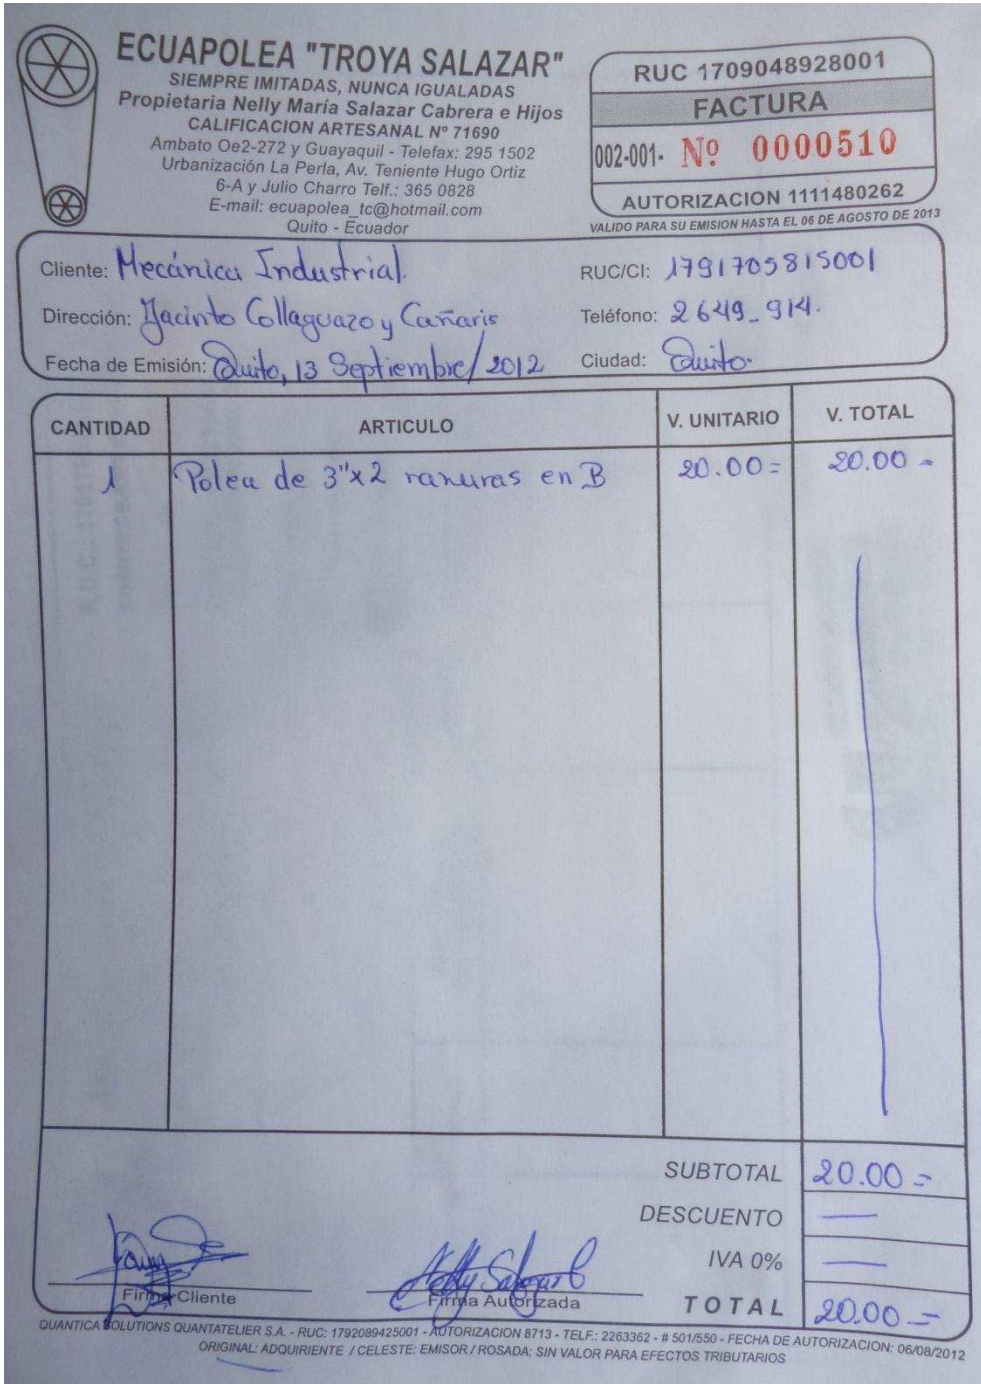 ECUAPOLEA "TROYA SALAZAR"
SIEMPRE IMITADAS, NUNCA IGUALADAS
Propietaria Nelly María Salazar Cabrera e Hijos
CALIFICACION ARTESANAL Nº 71690
Ambato Oe2-272 y Guayaquil - Telefax: 295 1502
Urbanización La Perla, Av. Teniente Hugo Ortiz
6-A y Julio Charro Telf.: 365 0828
E-mail: ecuapolea_tc@hotmail.com
Quito - Ecuador
RUC 1709048928001
FACTURA
002-001- Nº 0000510
AUTORIZACION 1111480262
VALIDO PARA SU EMISION HASTA EL 06 DE AGOSTO DE 2013
Cliente: Mecánica Industrial. RUC/CI: 1791705815001
Dirección: Jacinto Collaguazo y Cañaris Teléfono: 2649_914.
Fecha de Emisión: Quito, 13 Septiembre/2012 Ciudad: Quito.
CANTIDAD ARTICULO V. UNITARIO V. TOTAL
1 Polea de 3"x2 ranuras en B 20.00= 20.00=
SUBTOTAL 20.00=
DESCUENTO —
IVA 0% —
TOTAL 20.00=
Firma Cliente Firma Autorizada
QUANTICA SOLUTIONS QUANTATELIER S.A. - RUC: 1792089425001 - AUTORIZACION 8713 - TELF.: 2263362 - # 501/550 - FECHA DE AUTORIZACION: 06/08/2012
ORIGINAL: ADQUIRIENTE / CELESTE: EMISOR / ROSADA: SIN VALOR PARA EFECTOS TRIBUTARIOS